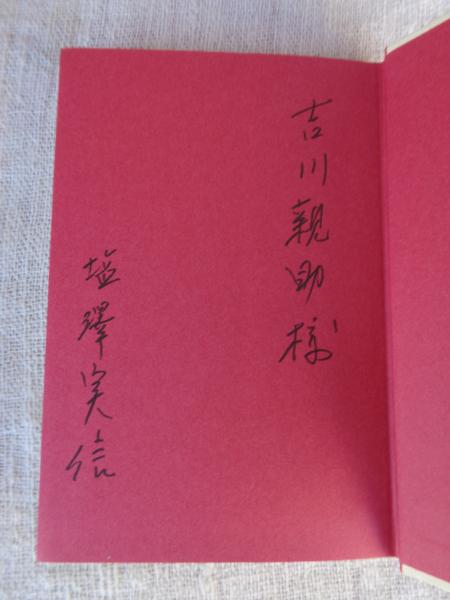 吉川親助様
塩澤実信